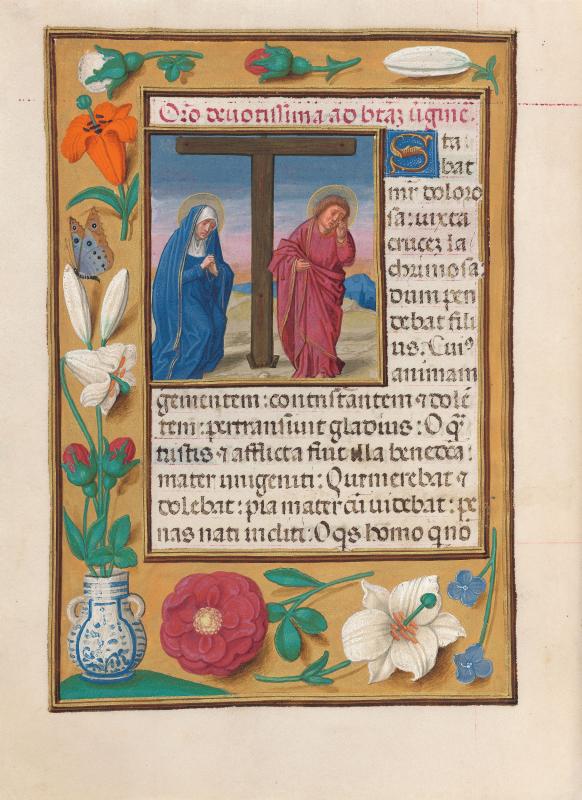 Oro deuotissima ad btaȝ ugine.
Sta
bat
mr̄ doloro
sa: iuxta
crucez la
chrimosa:
dum pen
debat fili
us: Cui⁹
animam
gementem: contristantem ⁊ dolē
tem: pertransiuit gladius: O q̄
tristis ⁊ afflicta fuit illa benedca:
mater unigeniti: Que merebat ⁊
dolebat: pia mater cū uidebat: pe
nas nati incliti: O qs homo q nō